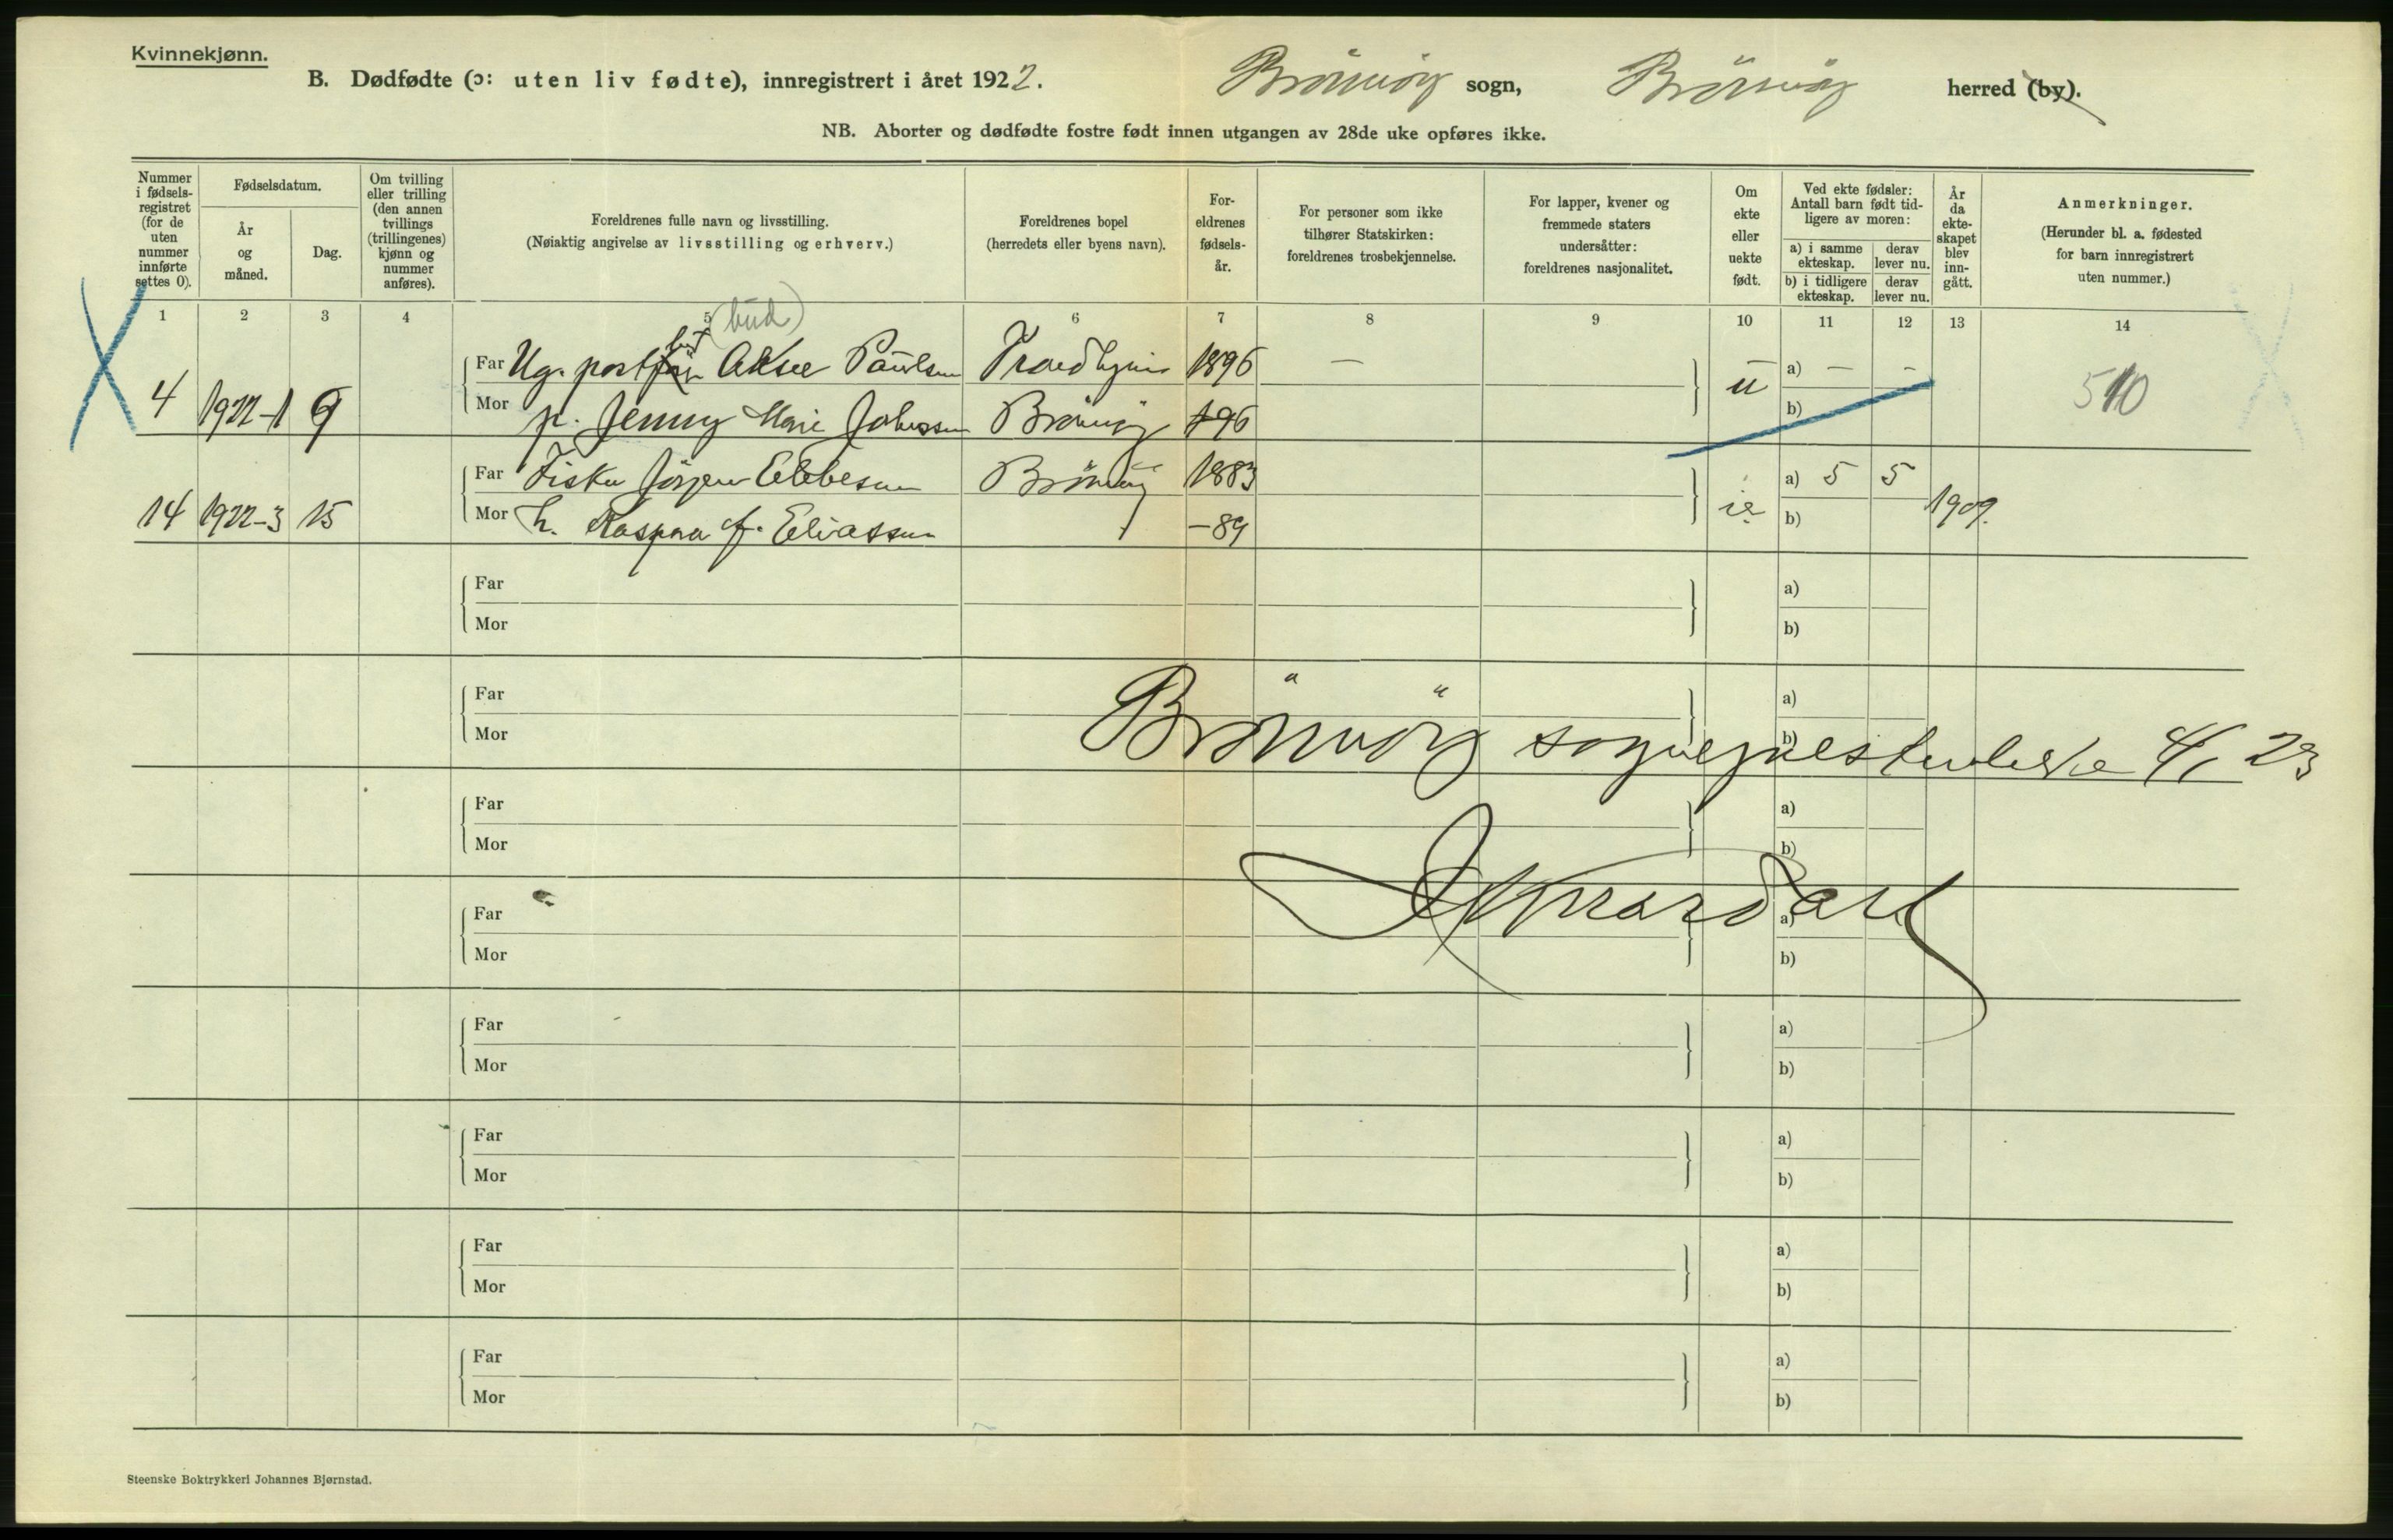 Kvinnekjønn.
B. Dødfødte (ɔ: uten liv fødte), innregistrert i året 1922. Brönnöy sogn, Brönnöy herred (by).
NB. Aborter og dødfødte fostre født innen utgangen av 28de uke opføres ikke.
Nummer i fødsels-registret (for de uten nummer innførte settes 0).
Fødselsdatum.
År og måned.
Dag.
Om tvilling eller trilling (den annen tvillings (trillingenes) kjønn og nummer anføres).
Foreldrenes fulle navn og livsstilling.
(Nøiaktig angivelse av livsstilling og erhverv.)
Foreldrenes bopel
(herredets eller byens navn).
For-eldrenes fødsels-år.
For personer som ikke tilhører Statskirken: foreldrenes trosbekjennelse.
For lapper, kvener og fremmede staters undersåtter: foreldrenes nasjonalitet.
Om ekte eller uekte født.
Ved ekte fødsler: Antall barn født tid-ligere av moren:
a) i samme ekteskap.
derav lever nu.
b) i tidligere ekteskap.
derav lever nu.
År da ekte-skapet blev inn-gått.
Anmerkninger.
(Herunder bl. a. fødested for barn innregistrert uten nummer.)
1 2 3 4 5 6 7 8 9 10 11 12 13 14
(bud)
4 1922-1 9 Far Ug. post Aksel Paulsen Trondhjem 1896 — u a) — —
Mor p. Jenny Marie Johnssen Brönnöy -96 b) 510
14 1922-3 15 Far Fisker Jörgen Ebbesen Brönnöy 1883 ie a) 5 5 1909.
Mor h. Kaspara f. Eliassen -89 b)
Far a)
Mor b)
Far a)
Mor b)
Brönnöy sogneprestembede 4/1 23
Far a)
Mor b)
Far a)
Mor b)
Far a)
Mor b)
Far a)
Mor b)
Far a)
Mor b)
Far a)
Mor b)
Steenske Boktrykkeri Johannes Bjørnstad.